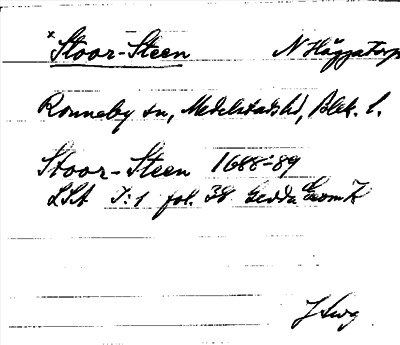 x Stoor-Steen N Häggatorp
Ronneby sn, Medelstads hd, Blek. l.
Stoor-Steen 1688-89
LSA I:1 fol. 38 Gedda Geom K